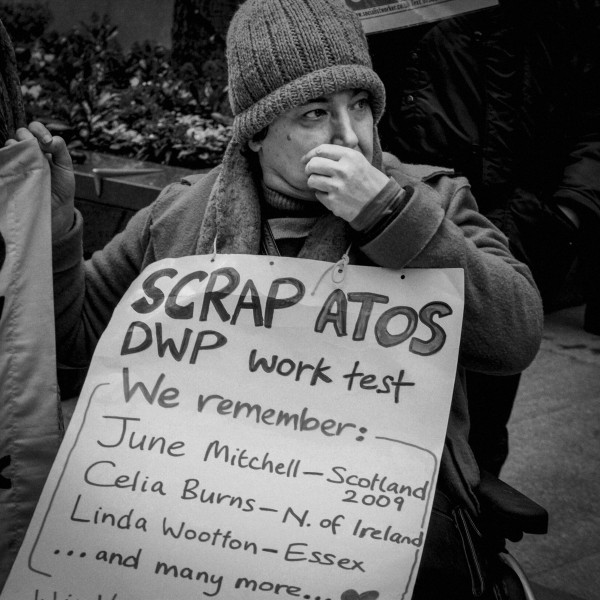 SCRAP ATOS
DWP work test
We remember:
June Mitchell – Scotland
2009
Celia Burns – N. of Ireland
Linda Wootton – Essex
...and many more...